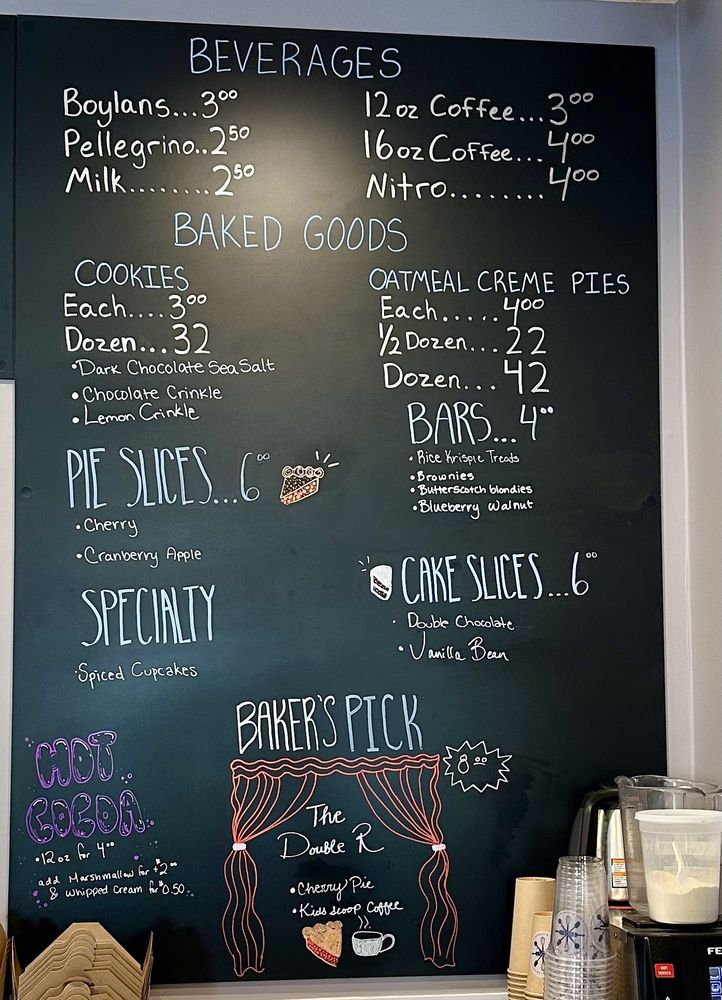 BEVERAGES
Boylans...3⁰⁰
Pellegrino..2⁵⁰
Milk........2⁵⁰
12oz Coffee...3⁰⁰
16oz Coffee...4⁰⁰
Nitro........4⁰⁰
BAKED GOODS
COOKIES
Each....3⁰⁰
Dozen...32
•Dark Chocolate Sea Salt
•Chocolate Crinkle
•Lemon Crinkle
OATMEAL CREME PIES
Each.....4⁰⁰
1/2 Dozen...22
Dozen...42
BARS...4⁰⁰
•Rice Krispie Treats
•Brownies
•Butterscotch blondies
•Blueberry Walnut
PIE SLICES...6⁰⁰
•Cherry
•Cranberry Apple
CAKE SLICES...6⁰⁰
•Double Chocolate
•Vanilla Bean
SPECIALTY
•Spiced Cupcakes
BAKER'S PICK
8⁰⁰
The
Double R
•Cherry Pie
•Kids scoop Coffee
HOT
COCOA
•12oz for 4⁰⁰
add Marshmallow for +2⁰⁰
& Whipped Cream for $0.50
HOT
WATER
FE